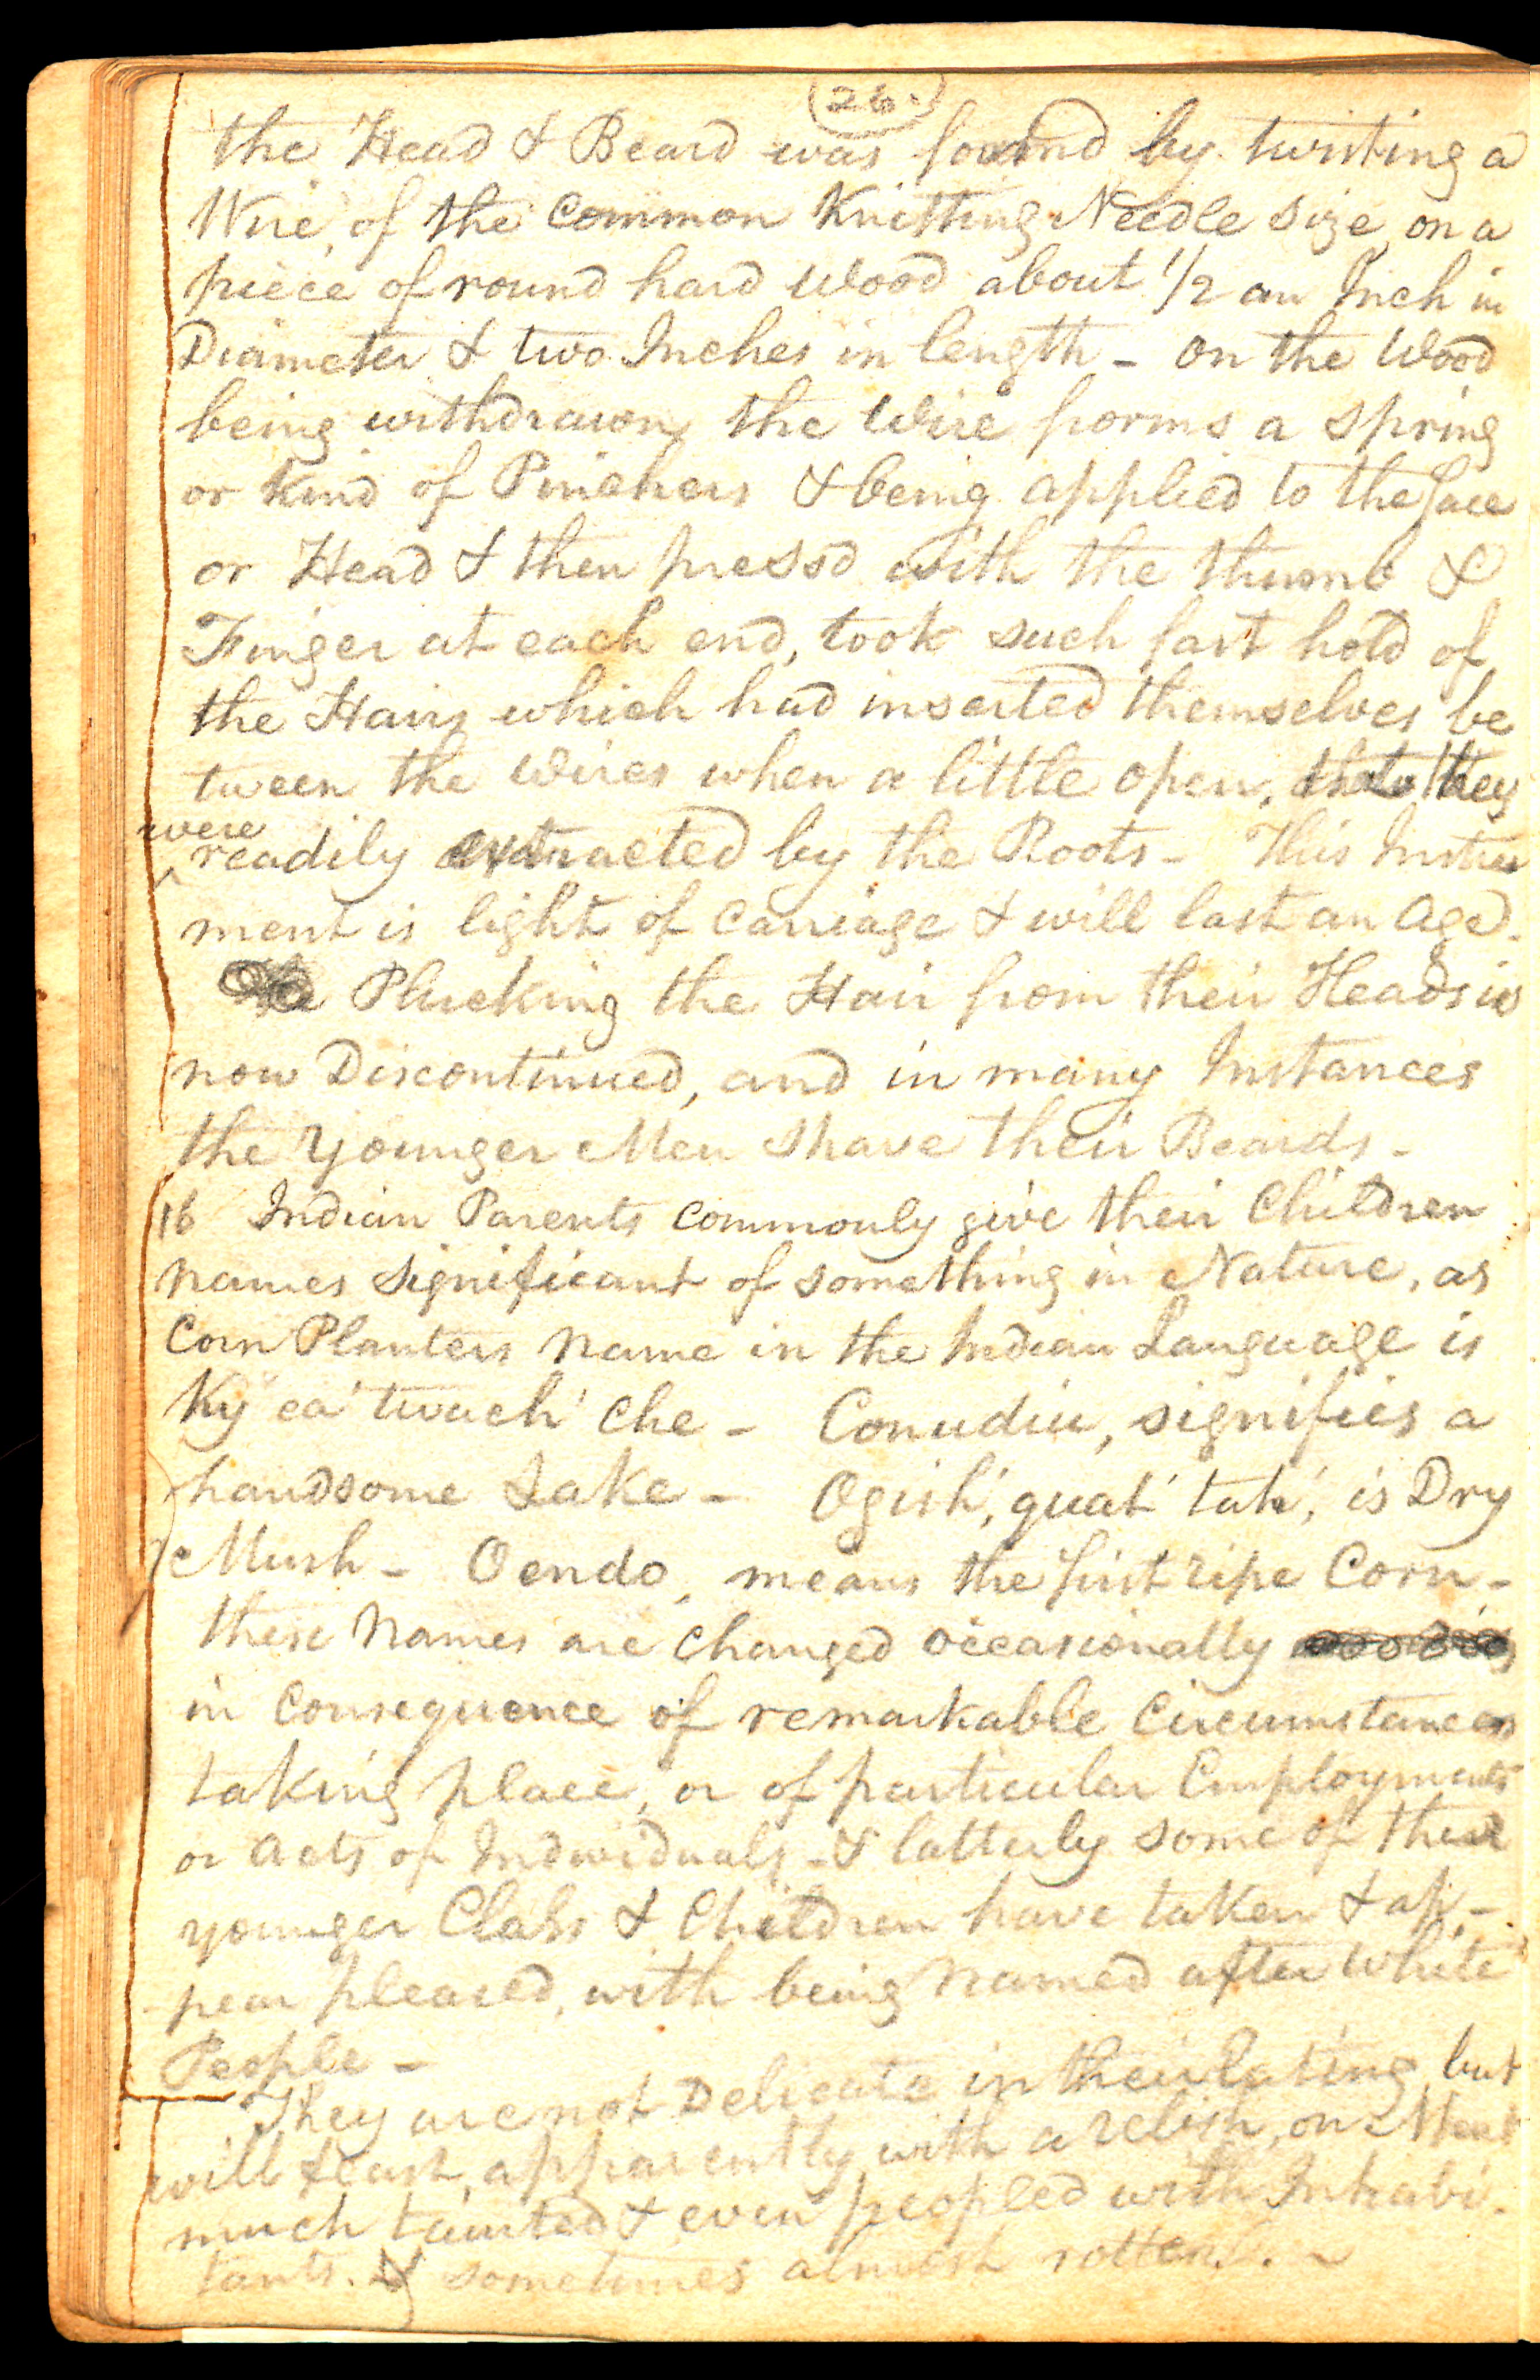 (26.)
the Head & Beard was found by twisting a
Wire, of the Common Knitting Needle size, on a
piece of round hard Wood about 1/2 an Inch in
Diameter & two Inches in length - on the Wood
being withdrawn, the Wire forms a spring
or kind of Pinchers & being applied to the face
or Head & then press'd with the thumb &
Finger at each end, took such fast hold of
the Hairs which had inserted themselves be
tween the Wires when a little open, that they
were
^ readily extracted by the Roots - This Instru
ment is light of Carriage & will last an Age.
Plucking the Hair from their Heads is
now Discontinued, and in many Instances
the Younger Men shave their Beards -
16 Indian Parents Commonly give their Children
Names significant of something in Nature, as
Corn Planters Name in the Indian Language is
Ky ea' twach' che - Conudiu, signifies a
handsome Lake - Ogish', quat' tah', is Dry
Mush - Oendo, means the first ripe Corn -
these Names are Changed occasionally
in Consequence of remarkable Circumstances
taking place, or of particular Employments
or Acts of Individuals - & latterly some of their
younger Class & Children have taken & ap -
pear pleased, with being Named after White
People -
They are not Delicate in their Eating but
will feast, apparently with a relish, on Meat
much tainted & even peopled with Inhabi-
tants. & sometimes almost rotten. -